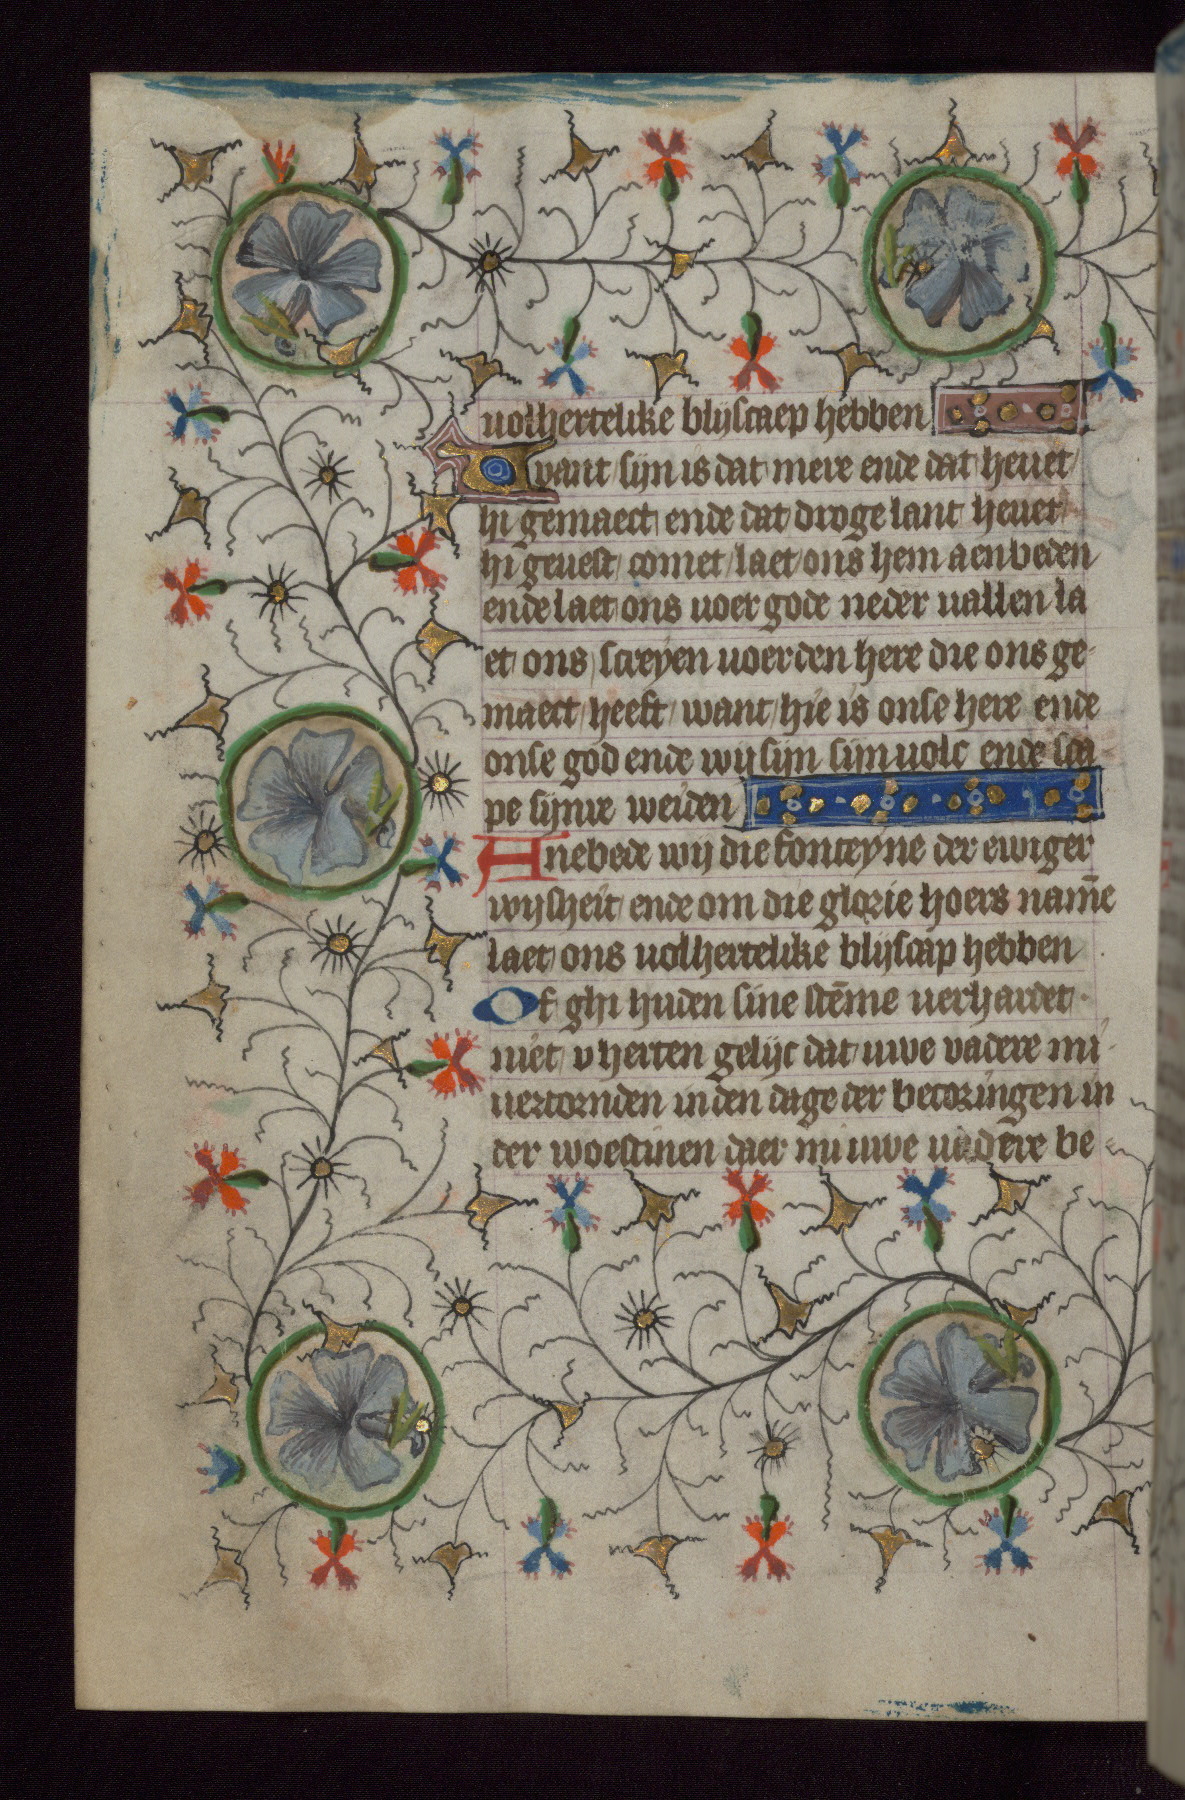 uolhertelike blijscaep hebben
Want sijn is dat mere ende dat heuet
hi gemaect ende dat droge lant heuet
hi geuest comet laet ons hem aenbeden
ende laet ons uoer gode neder uallen la
et ons screyen uoer den here die ons ge
maect heeft want hie is onse here ende
onse god ende wij sijn sijn uolc ende sca
pe sijnre weiden
Anebede wij die fonteyne der ewiger
wijsheit ende om die glorie hoers nam̄e
laet ons uolhertelike blijscap hebben
Of ghi huden sine stēme uerhardet
niet v herten gelijc dat uwe vadere mi
uertornden in den dage der becoringen in
der woestinen daer mi uwe uadere be